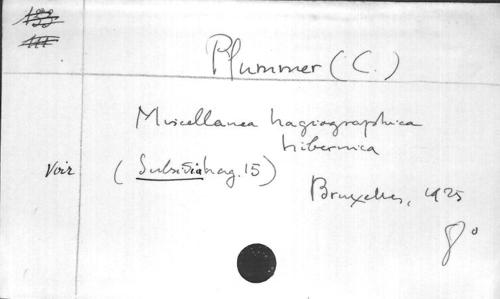 Plummer (C.)
Miscellanea hagiographica
hibernica
Voir (Subsidia hag. 15)
Bruxelles, 1925
8°